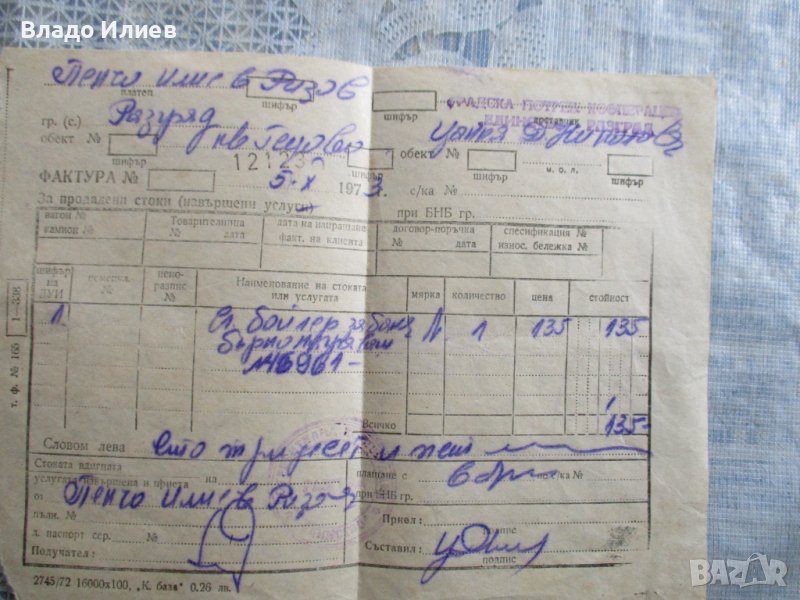 Владо Илиев
Пенчо Илиев Разов
платец шифър шифър доставчик
ГРАДСКА ПОТРЕБ. КООПЕРАЦИЯ
гр. (с.) Разград
обект № шифър обект № шифър м. о. л. шифър
12123
ФАКТУРА № 5. X 1973 г. с/ка № при БНБ гр.
За продадени стоки (извършени услуги)
вагон № камион № Товарителница № дата дата на изпращане факт. на клиента договор-поръчка № дата спецификация № износ. бележка №
шифър на ДУИ номенкл. № цено-разпис № Наименование на стоката или услугата мярка количество цена стойност
1. Ел. бойлер за баня N 1 135 135
№ 46961-
Всичко 135-
Словом лева Сто тридесет и пет
Стоката вдигната
услугата извършена и приета плащане с в брой по с/ка №
от Пенчо Илиев Разов при БНБ гр.
пълн. №
Приел:
подпис
л. паспорт сер. №
Получател: Съставил:
подпис
2745/72 16000x100, „К. база" 0.26 лв.
т. ф. № 165 1—838
BAZAR